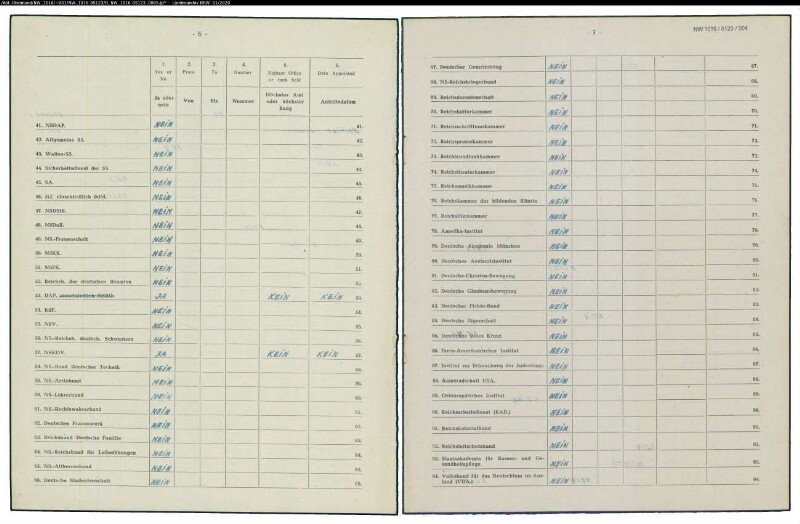 - 6 -
1.
2.
3.
4.
5.
6.
Yes or No
From
To
Number
Highest Office or rank held
Date Appointed
Ja oder nein
Von
Bis
Nummer
Höchstes Amt oder höchster Rang
Antrittsdatum
41. NSDAP. NEIN 41.
42. Allgemeine SS. NEIN 42.
43. Waffen-SS. NEIN 43.
44. Sicherheitsdienst der SS. NEIN 44.
45. SA. NEIN 45.
46. HJ. einschließlich BdM. NEIN 46.
47. NSDStB. NEIN 47.
48. NSDoB. NEIN 48.
49. NS.-Frauenschaft NEIN 49.
50. NSKK. NEIN 50.
51. NSFK. NEIN 51.
52. Reichsb. der deutschen Beamten NEIN 52.
53. DAF. JA KEIN KEIN 53.
54. KdF. NEIN 54.
55. NSV. NEIN 55.
56. NS.-Reichsb. deutsch. Schwestern NEIN 56.
57. NSKOV. JA KEIN KEIN 57.
58. NS.-Bund Deutscher Technik NEIN 58.
59. NS.-Ärztebund NEIN 59.
60. NS.-Lehrerbund NEIN 60.
61. NS.-Rechtswahrerbund NEIN 61.
62. Deutsches Frauenwerk NEIN 62.
63. Reichsbund Deutsche Familie NEIN 63.
64. NS.-Reichsbund für Leibesübungen NEIN 64.
65. NS.-Altherrenbund NEIN 65.
66. Deutsche Studentenschaft NEIN 66.
- 7 -
NW 1016 / 8123 / 004
67. Deutscher Gemeindetag NEIN 67.
68. NS-Reichskriegerbund NEIN 68.
69. Reichsdozentenschaft NEIN 69.
70. Reichskulturkammer NEIN 70.
71. Reichsschrifttumskammer NEIN 71.
72. Reichspressekammer NEIN 72.
73. Reichsrundfunkkammer NEIN 73.
74. Reichstheaterkammer NEIN 74.
75. Reichsmusikkammer NEIN 75.
76. Reichskammer der bildenden Künste NEIN 76.
77. Reichsfilmkammer NEIN 77.
78. Amerika-Institut NEIN 78.
79. Deutsche Akademie München NEIN 79.
80. Deutsches Auslandsinstitut NEIN 80.
81. Deutsche-Christen-Bewegung NEIN 81.
82. Deutsche Glaubensbewegung NEIN 82.
83. Deutscher Fichte-Bund NEIN 83.
84. Deutsche Jägerschaft NEIN 84.
85. Deutsches Rotes Kreuz NEIN 85.
86. Ibero-Amerikanisches Institut NEIN 86.
87. Institut zur Erforschung der Judenfrage NEIN 87.
88. Kameradschaft USA. NEIN 88.
89. Osteuropäisches Institut NEIN 89.
90. Reichsarbeitsdienst (RAD.) NEIN 90.
91. Reichskolonialbund NEIN 91.
92. Reichsluftschutzbund NEIN 92.
93. Staatsakademie für Rassen- und Gesundheitspflege NEIN 93.
94. Volksbund für das Deutschtum im Ausland (VDA.) NEIN 94.